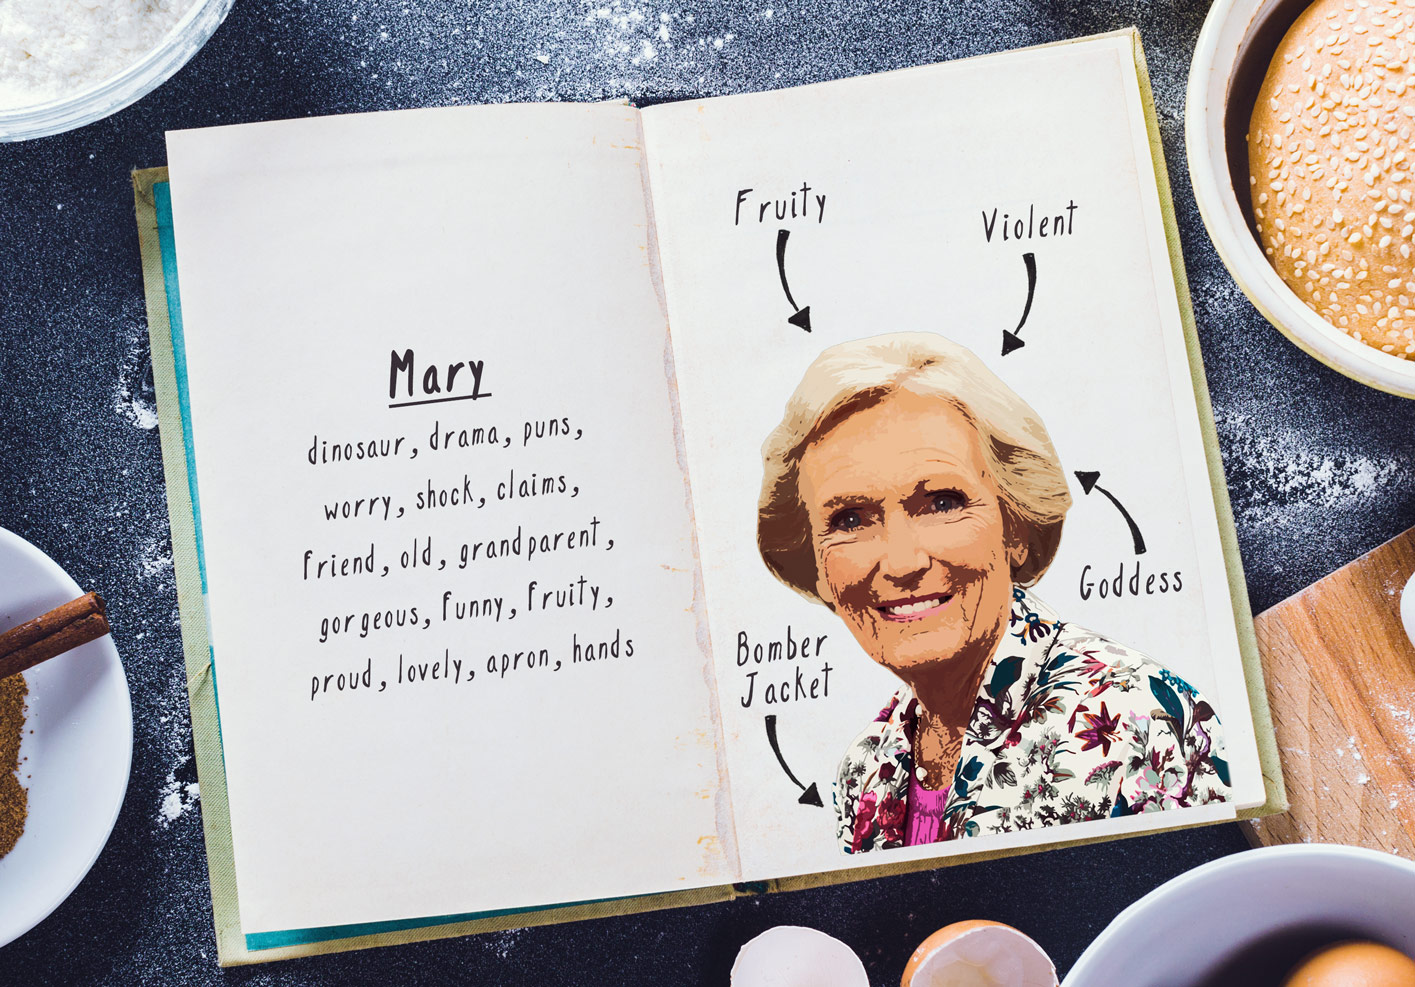 Mary
dinosaur, drama, puns,
worry, shock, claims,
friend, old, grandparent,
gorgeous, funny, fruity,
proud, lovely, apron, hands
Fruity
Violent
Goddess
Bomber
Jacket